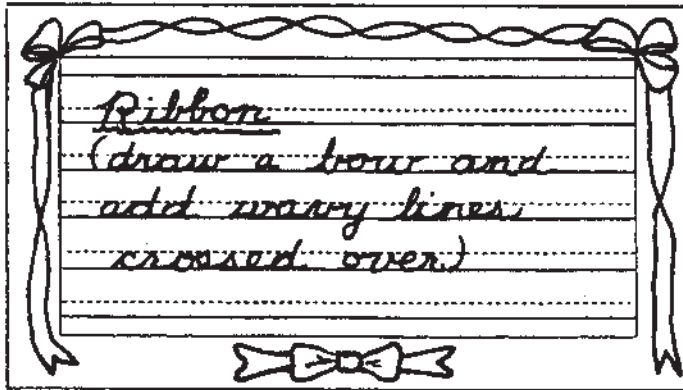 Ribbon
(draw a bow and
add wavy lines
crossed over)